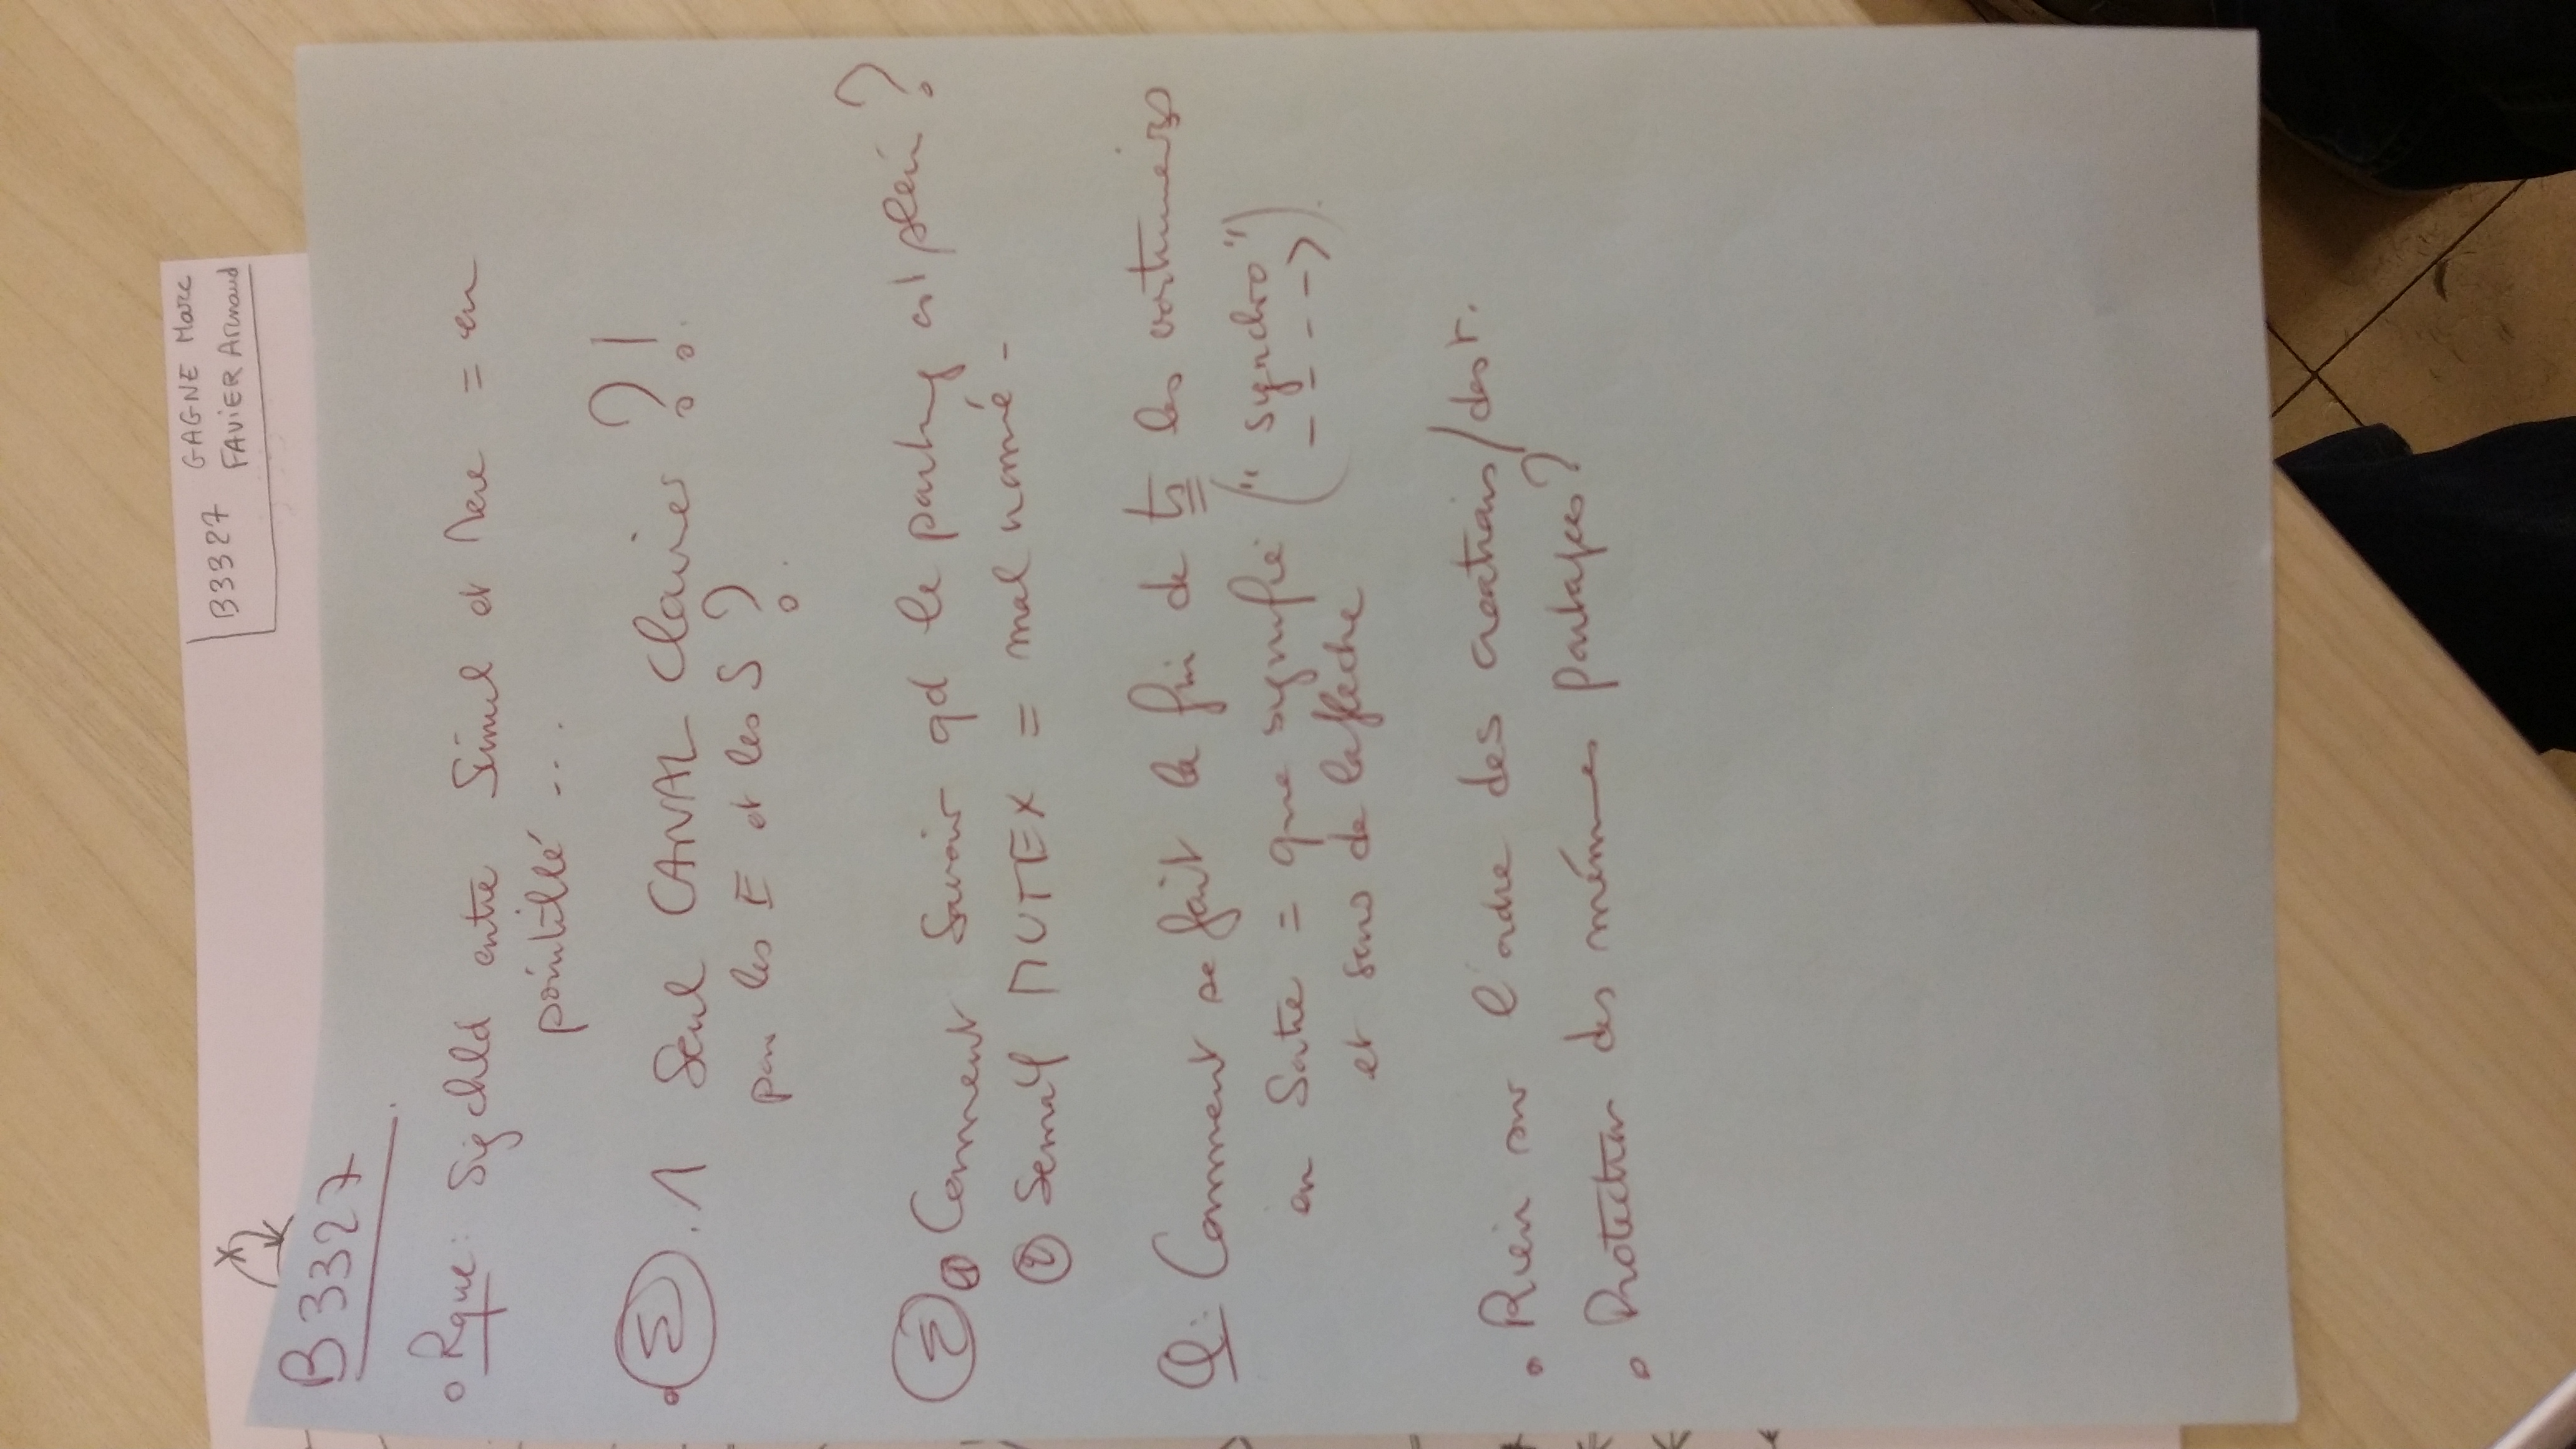 B3327 GAGNE Marc
FAVIER Arnaud
B3327
Rque: Sigchld entre Simul et Mere = en
pointillé ...
Σ . 1 Seul CANAL Clavier ?!
pour les E et les S ?
Σ ① Comment Savoir qd le parking est plein ?
② Semaϕ MUTEX = mal nommé -
Q: Comment se fait la fin de ts les voituriers
en Sortie = que signifie ("synchro"
---->)
et sens de la flèche
• Rien sur l'ordre des créations/dest.
• Protection des mémoires partagées ?